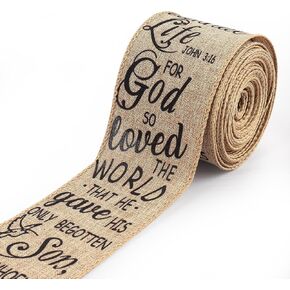 Life
JOHN 3:16
FOR
God
so
loved
THE
WORLD
THAT HE
gave HIS
ONLY BEGOTTEN
Son,